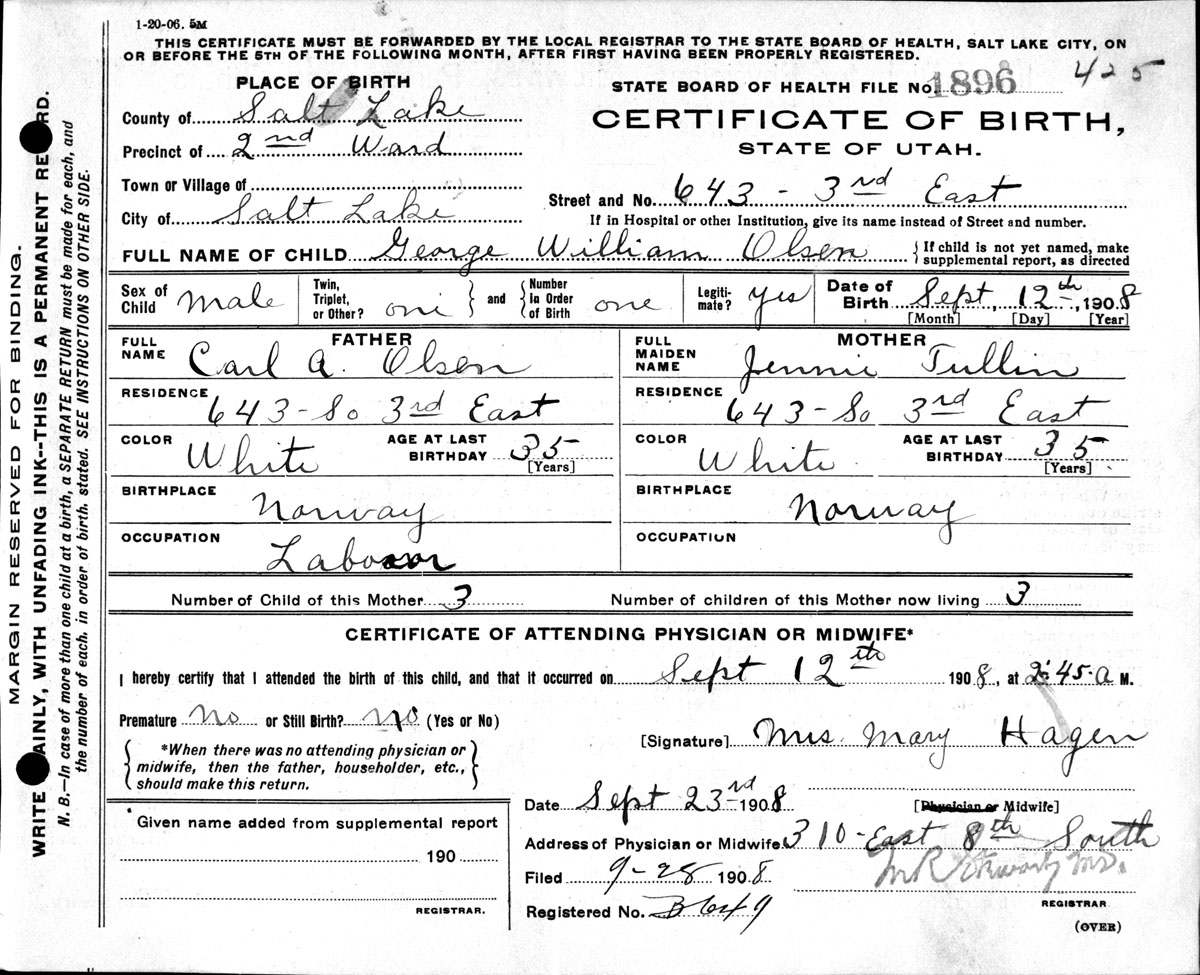 1-20-06. 5M
THIS CERTIFICATE MUST BE FORWARDED BY THE LOCAL REGISTRAR TO THE STATE BOARD OF HEALTH, SALT LAKE CITY, ON
OR BEFORE THE 5TH OF THE FOLLOWING MONTH, AFTER FIRST HAVING BEEN PROPERLY REGISTERED.
PLACE OF BIRTH
STATE BOARD OF HEALTH FILE No. 1896 425
County of Salt Lake
CERTIFICATE OF BIRTH,
Precinct of 2nd Ward
STATE OF UTAH.
Town or Village of
Street and No. 643 - 3rd East
City of Salt Lake
If in Hospital or other Institution, give its name instead of Street and number.
FULL NAME OF CHILD George William Olsen
If child is not yet named, make
supplemental report, as directed
Sex of Child Male
Twin, Triplet, or Other? one
and
Number In Order of Birth one
Legiti-mate? yes
Date of Birth Sept 12th, 1908
[Month] [Day] [Year]
FATHER
FULL NAME Carl A. Olsen
RESIDENCE 643-So 3rd East
COLOR White
AGE AT LAST BIRTHDAY 35
[Years]
BIRTHPLACE Norway
OCCUPATION Labor
MOTHER
FULL MAIDEN NAME Jennie Tullin
RESIDENCE 643-So 3rd East
COLOR White
AGE AT LAST BIRTHDAY 35
[Years]
BIRTHPLACE Norway
OCCUPATION
Number of Child of this Mother 3 Number of children of this Mother now living 3
CERTIFICATE OF ATTENDING PHYSICIAN OR MIDWIFE*
I hereby certify that I attended the birth of this child, and that it occurred on Sept 12th 1908, at 2:45 a M.
Premature No or Still Birth? No (Yes or No)
*When there was no attending physician or
midwife, then the father, householder, etc.,
should make this return.
[Signature] Mrs. Mary Hagen
[Physician or Midwife]
Date Sept 23rd 1908
Address of Physician or Midwife 310-East 8th South
Filed 9-28 1908
Registered No. B649
M.D.
REGISTRAR
(OVER)
Given name added from supplemental report
190
REGISTRAR.
MARGIN RESERVED FOR BINDING.
WRITE AINLY, WITH UNFADING INK--THIS IS A PERMANENT RE RD.
N. B.—In case of more than one child at a birth, a SEPARATE RETURN must be made for each, and
the number of each, in order of birth, stated. SEE INSTRUCTIONS ON OTHER SIDE.